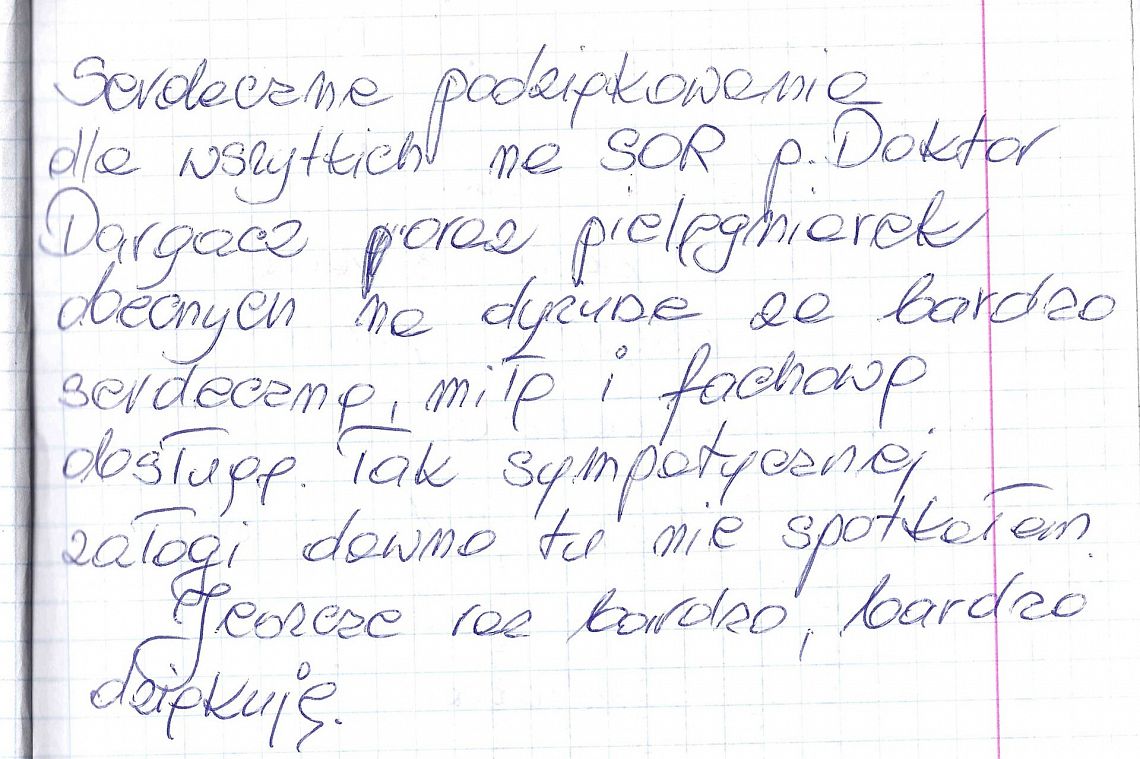 Serdeczne podziękowania
dla wszytkich na SOR p. Doktor
Dargacz oraz pielęgniarek
obecnych na dyżurze za bardzo
serdeczną, miłą i fachową
obsługę. Tak sympatycznej
załogi dawno tu nie spotkałam.
Jeszcze raz bardzo, bardzo
dziękuję.